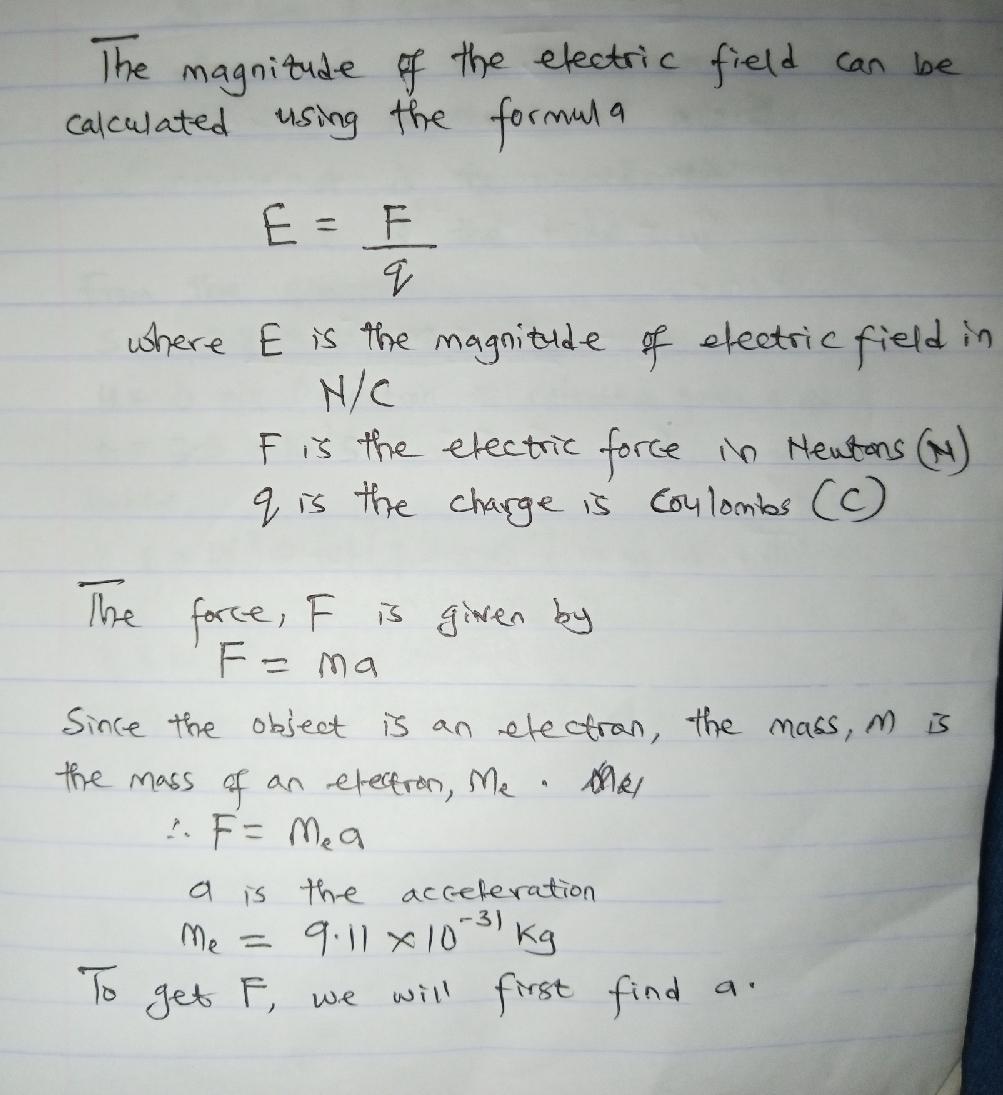 The magnitude of the electric field can be
calculated using the formula
E = F
q
where E is the magnitude of electric field in
N/C
F is the electric force in Newtons (N)
q is the charge is Coulombs (C)
The force, F is given by
F = ma
Since the object is an electron, the mass, m is
the mass of an electron, Me .
∴ F = Mea
a is the acceleration
Me = 9.11 × 10⁻³¹ kg
To get F, we will first find a.